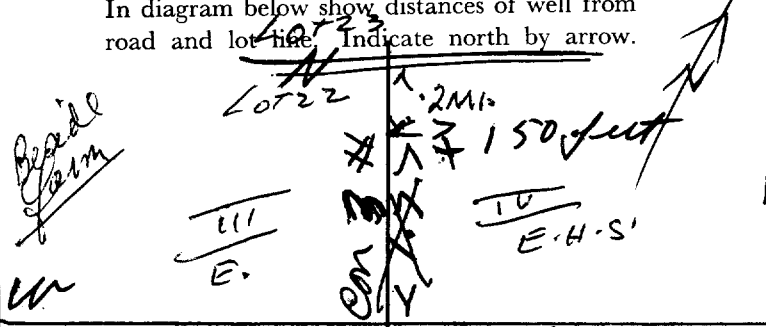 In diagram below show distances of well from
road and lot line. Indicate north by arrow.
Lot 23
Lot 22
.2 Mi.
150 feet
N
Beside
farm
III
E.
IV
E.H.S.
Con 3